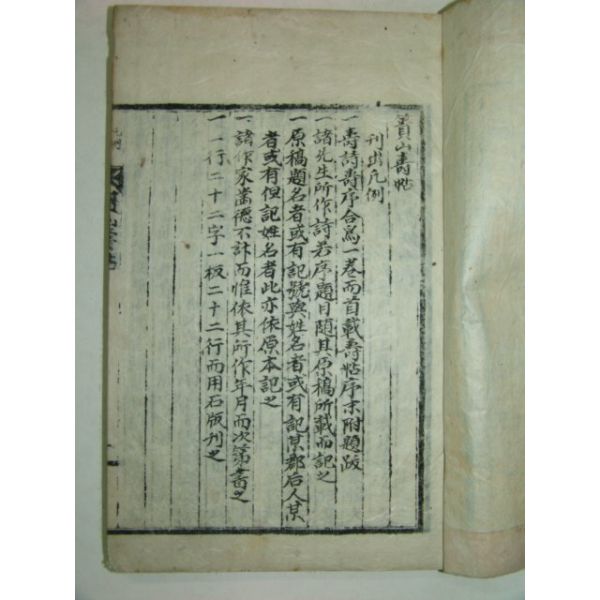 賁山壽帖
刊出凡例
一壽詩壽序合爲一卷而首載壽帖序末附題跋
一諸先生所作詩若序題目隨其原稿所載而記之
一原稿題名者或有記號與姓名者或有記某郡后人某
者或有但記姓名者此亦依原本記之
一諸作家齒德不計而惟依其所作年月而次第書之
一一行二十二字一板二十二行而用石版刊之
凡例